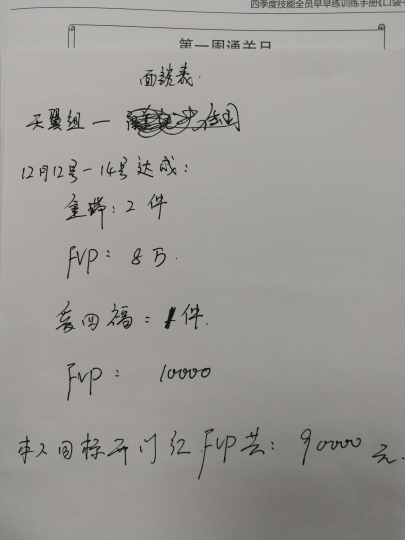 四季度技能全员早早练训练手册《口袋
第一周通关日
面谈表.
天翼组一
12月12号-14号达成:
重疾:2件
FVP: 8万.
爱回福:1件.
FVP: 10000
本人目标开门红FVP共: 90000元.